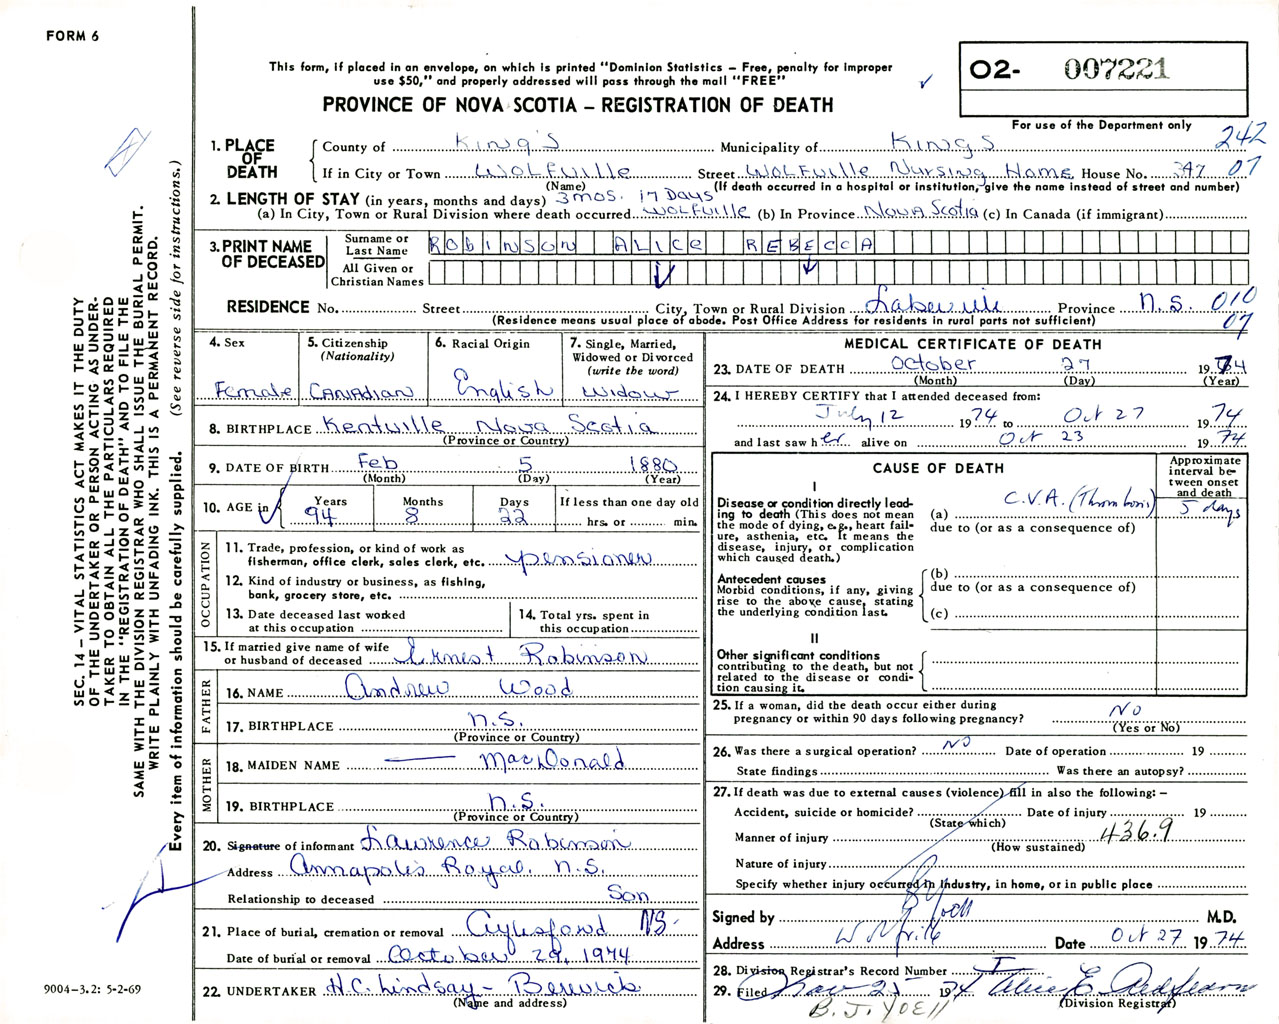 FORM 6
This form, if placed in an envelope, on which is printed "Dominion Statistics – Free, penalty for improper
use $50," and properly addressed will pass through the mail "FREE"
O2- 007221
PROVINCE OF NOVA SCOTIA – REGISTRATION OF DEATH
For use of the Department only
242
1. PLACE OF DEATH
County of King's Municipality of Kings
If in City or Town Wolfville Street Wolfville Nursing Home House No. 247 07
(Name) (If death occurred in a hospital or institution, give the name instead of street and number)
2. LENGTH OF STAY (in years, months and days) 3 mos. 17 Days
(a) In City, Town or Rural Division where death occurred Wolfville (b) In Province Nova Scotia (c) In Canada (if immigrant)
3. PRINT NAME OF DECEASED
Surname or Last Name ROBINSON ALICE REBECCA
All Given or Christian Names
RESIDENCE No. Street City, Town or Rural Division Lakeville Province N.S. 010
(Residence means usual place of abode. Post Office Address for residents in rural parts not sufficient) 07
4. Sex Female
5. Citizenship (Nationality) Canadian
6. Racial Origin English
7. Single, Married, Widowed or Divorced (write the word) Widow
8. BIRTHPLACE Kentville Nova Scotia
(Province or Country)
9. DATE OF BIRTH Feb 5 1880
(Month) (Day) (Year)
10. AGE in Years 94 Months 8 Days 22
If less than one day old
hrs. or min.
OCCUPATION
11. Trade, profession, or kind of work as
fisherman, office clerk, sales clerk, etc. pensioner
12. Kind of industry or business, as fishing,
bank, grocery store, etc.
13. Date deceased last worked
at this occupation
14. Total yrs. spent in
this occupation
15. If married give name of wife
or husband of deceased Ernest Robinson
FATHER
16. NAME Andrew Wood
17. BIRTHPLACE N.S.
(Province or Country)
MOTHER
18. MAIDEN NAME MacDonald
19. BIRTHPLACE N.S.
(Province or Country)
20. Signature of informant Lawrence Robinson
Address Annapolis Royal. N.S.
Relationship to deceased Son
21. Place of burial, cremation or removal Aylesford NS.
Date of burial or removal October 29, 1974
22. UNDERTAKER H.C. Lindsay – Berwick
(Name and address)
MEDICAL CERTIFICATE OF DEATH
23. DATE OF DEATH October 27 1974
(Month) (Day) (Year)
24. I HEREBY CERTIFY that I attended deceased from:
July 12 1974 to Oct 27 1974
and last saw her alive on Oct 23 1974
CAUSE OF DEATH
Approximate interval between onset and death
I
Disease or condition directly leading
to death (This does not mean
the mode of dying, e.g., heart failure,
asthenia, etc. It means the
disease, injury, or complication
which caused death.)
(a) C.V.A. (Thrombosis) 5 days
due to (or as a consequence of)
Antecedent causes
Morbid conditions, if any, giving
rise to the above cause, stating
the underlying condition last.
(b)
due to (or as a consequence of)
(c)
II
Other significant conditions
contributing to the death, but not
related to the disease or condition
causing it.
25. If a woman, did the death occur either during
pregnancy or within 90 days following pregnancy? No
(Yes or No)
26. Was there a surgical operation? No Date of operation 19
State findings Was there an autopsy?
27. If death was due to external causes (violence) fill in also the following: –
Accident, suicide or homicide? Date of injury 19
(State which)
Manner of injury 436.9
(How sustained)
Nature of injury
Specify whether injury occurred in industry, in home, or in public place
Signed by Yoell M.D.
Address Date Oct 27 1974
28. Division Registrar's Record Number
29. Filed Nov 25 1974 Alice E. Redfearn
(Division Registrar)
B. J. YOELL
SEC. 14 – VITAL STATISTICS ACT MAKES IT THE DUTY
OF THE UNDERTAKER OR PERSON ACTING AS UNDERTAKER
TO OBTAIN ALL THE PARTICULARS REQUIRED
IN THE "REGISTRATION OF DEATH" AND TO FILE THE
SAME WITH THE DIVISION REGISTRAR WHO SHALL ISSUE THE BURIAL PERMIT.
WRITE PLAINLY WITH UNFADING INK. THIS IS A PERMANENT RECORD.
Every item of information should be carefully supplied. (See reverse side for instructions.)
9004-3.2: 5-2-69